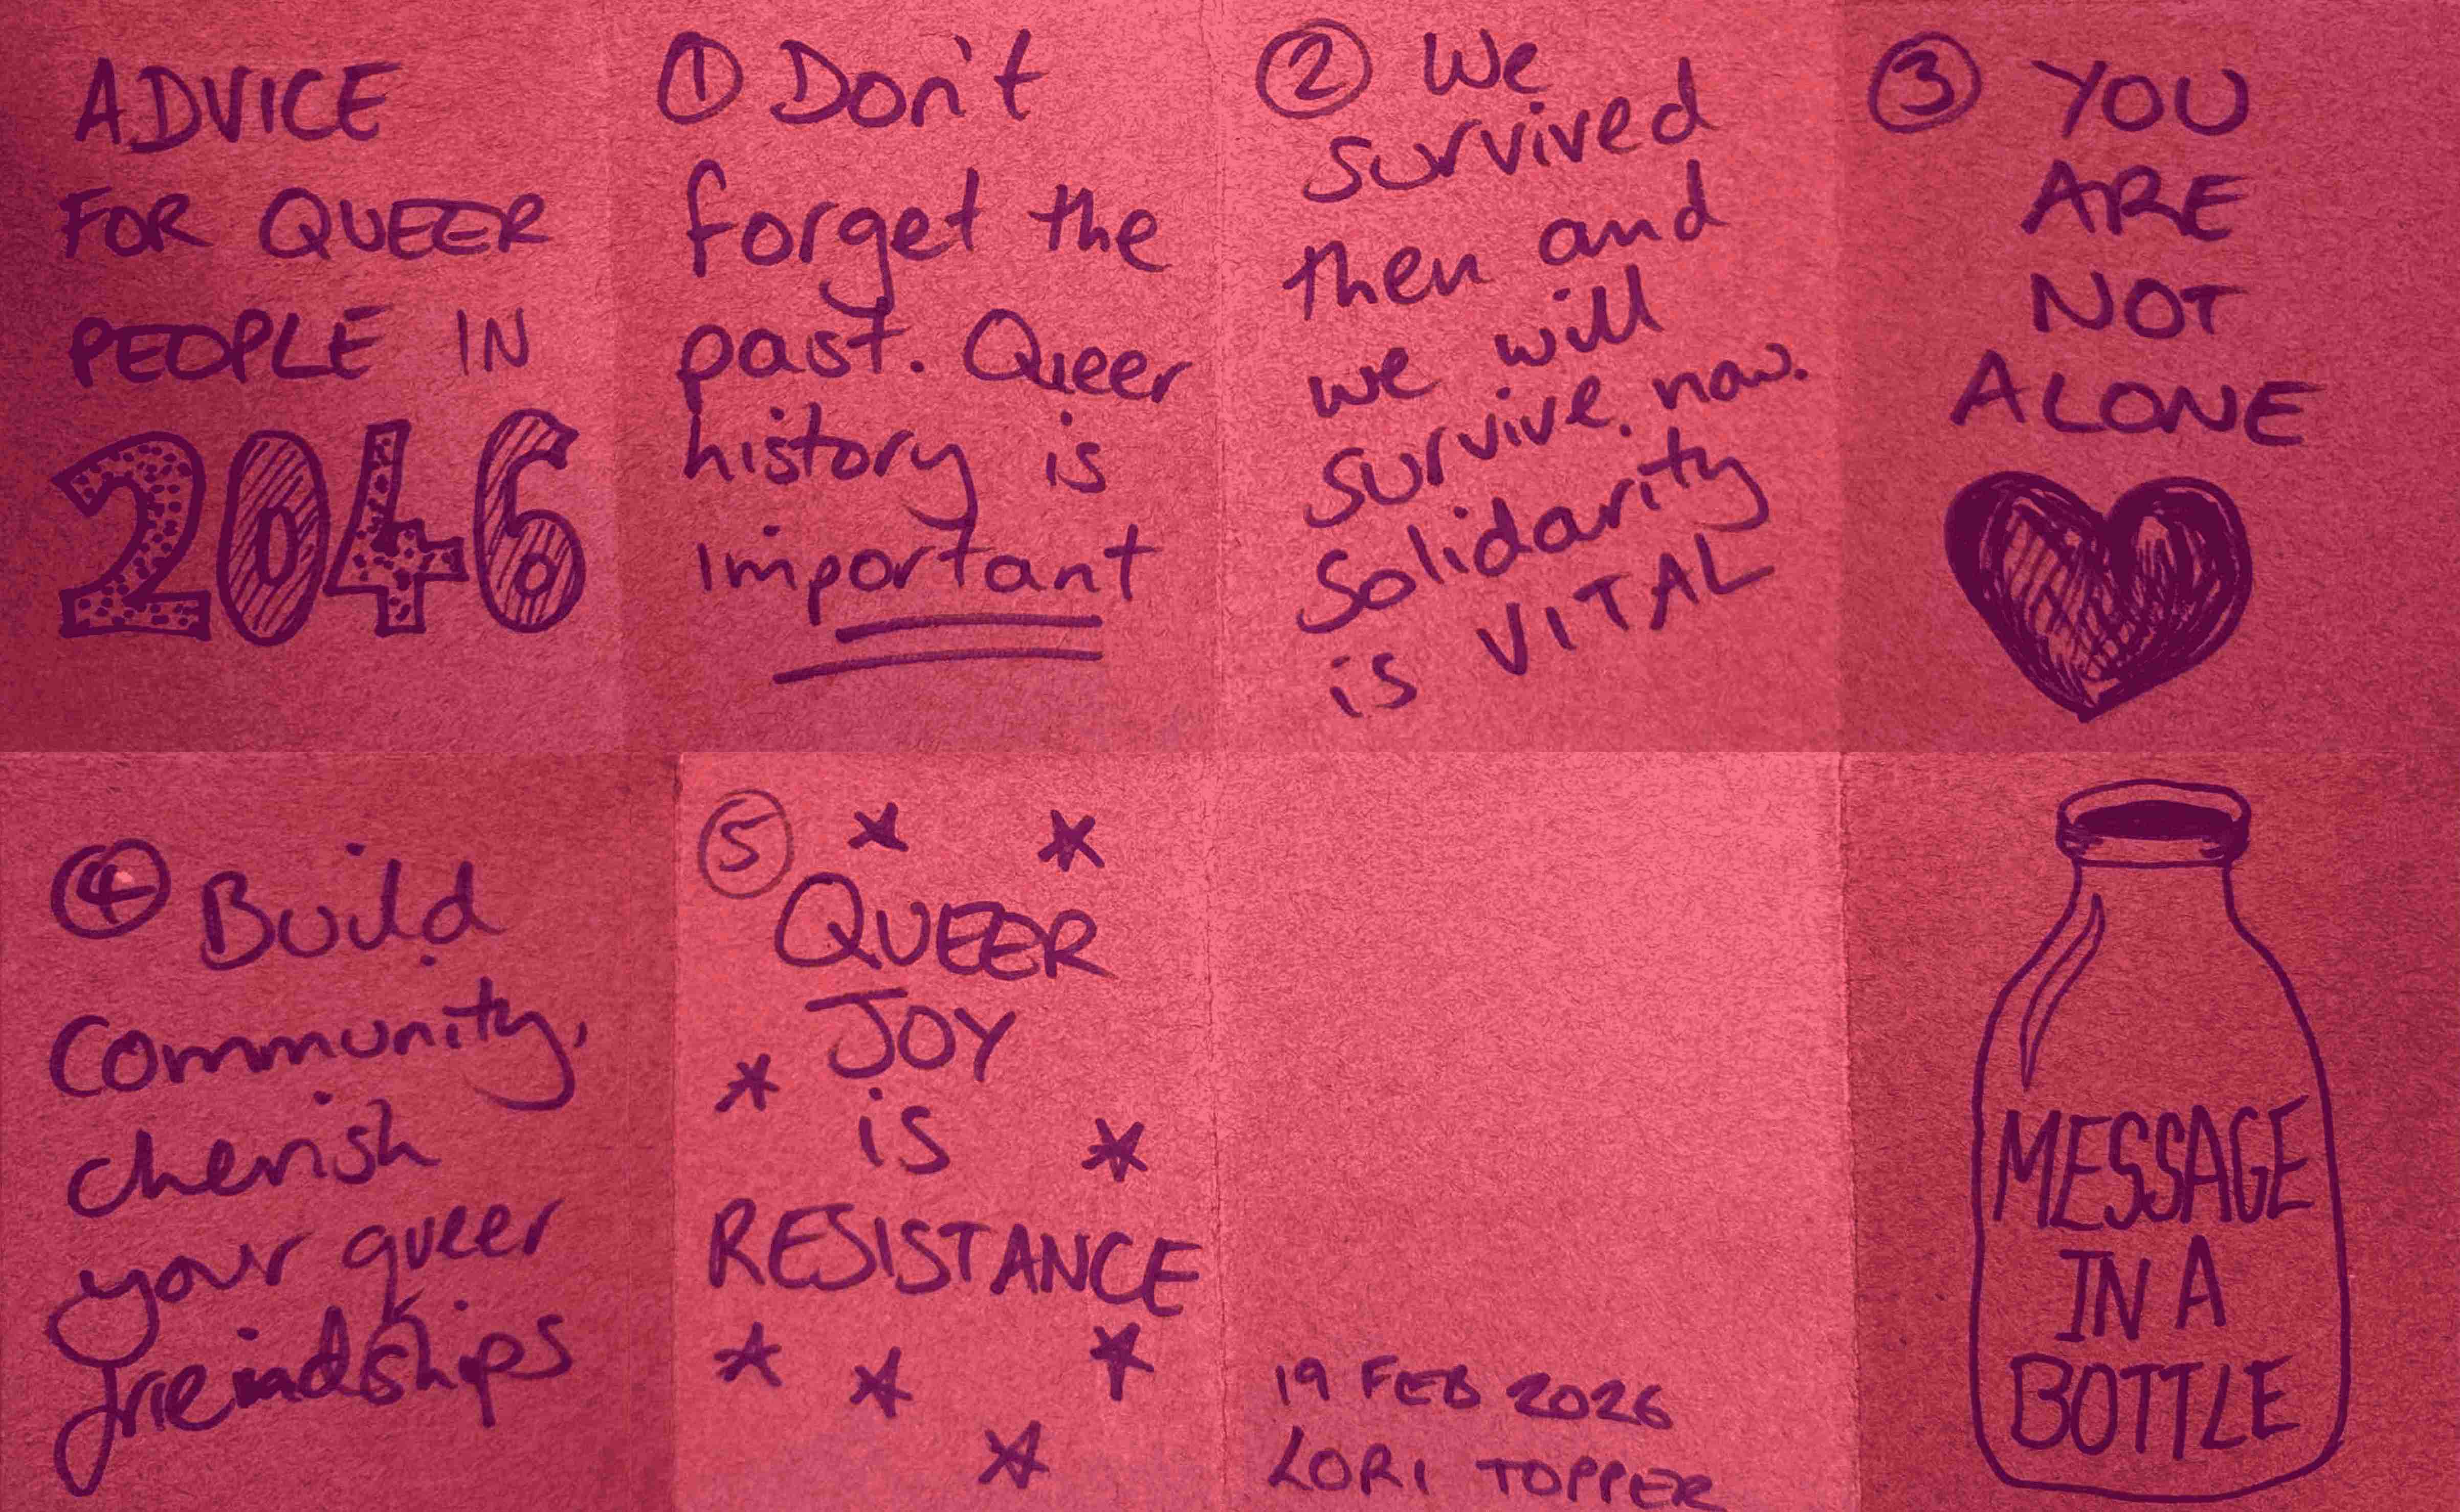 ADVICE
FOR QUEER
PEOPLE IN
2046
① Don't
forget the
past. Queer
history is
important
② We
survived
then and
we will
survive now.
Solidarity
is VITAL
③ YOU
ARE
NOT
ALONE
④ Build
Community,
cherish
your queer
friendships
⑤
QUEER
JOY
is
RESISTANCE
19 FEB 2026
LORI TOPPER
MESSAGE
IN A
BOTTLE